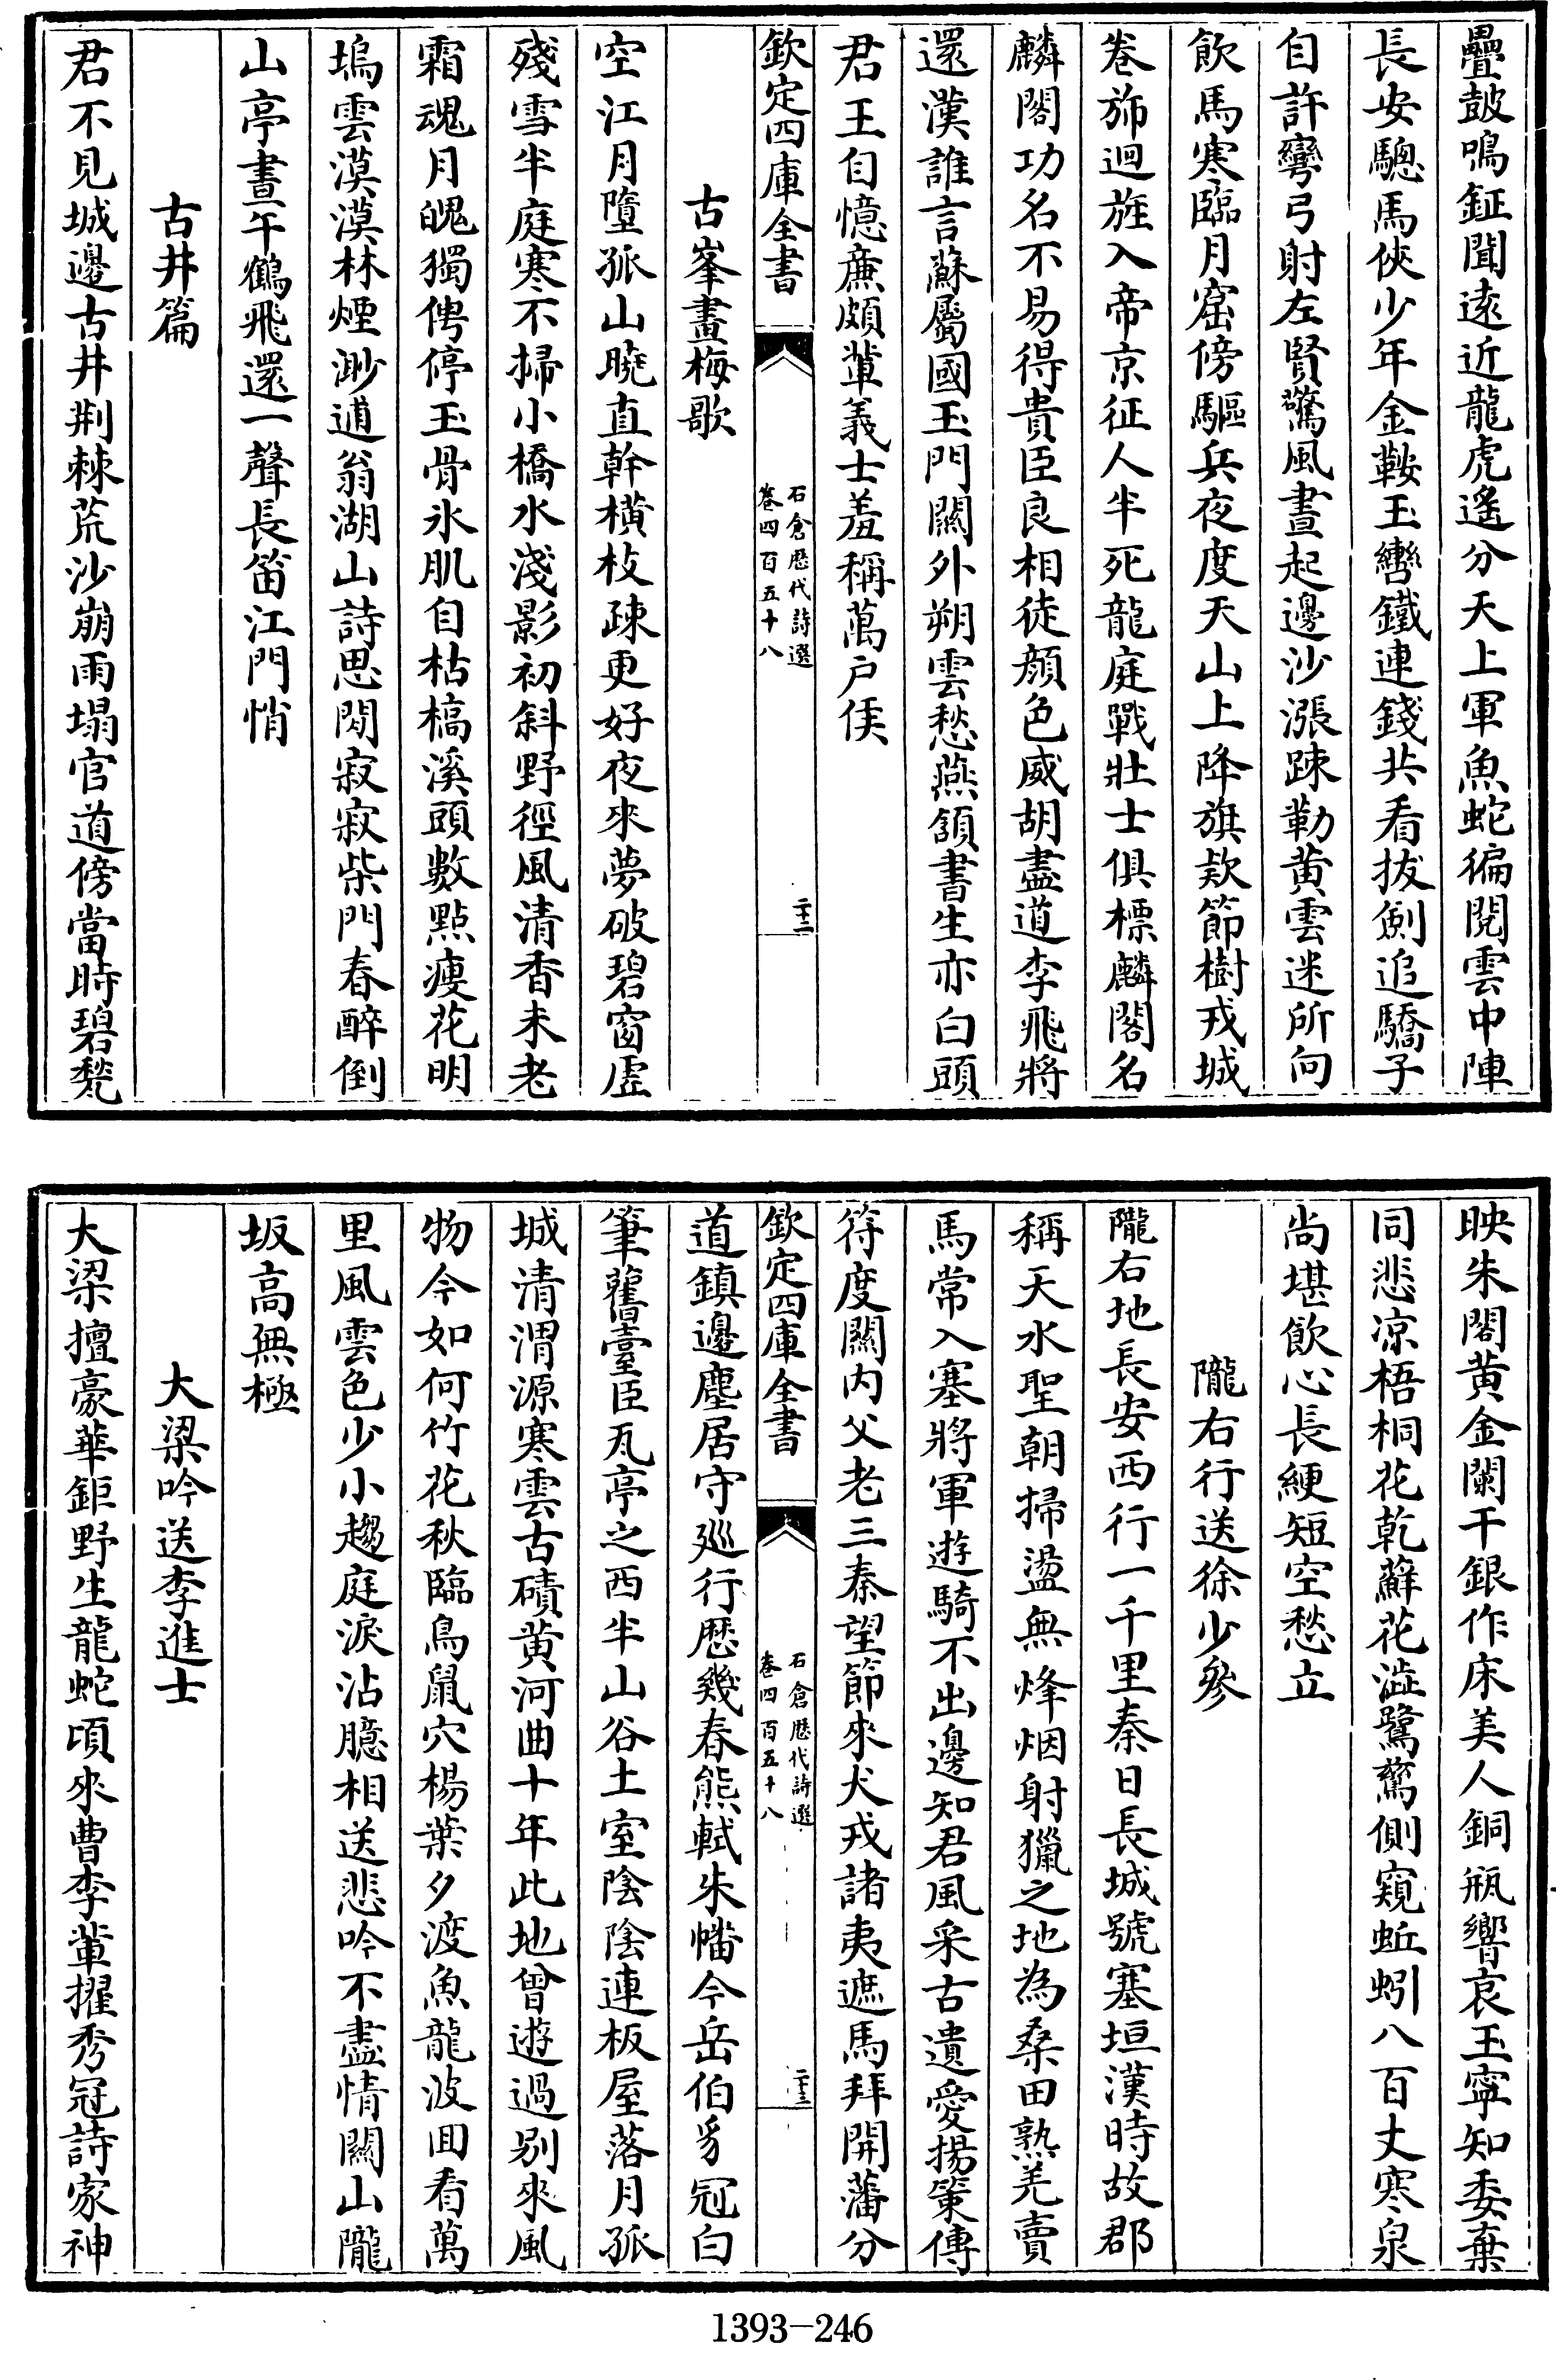 疊鼓鳴鉦聞遠近龍虎遙分天上軍魚蛇徧閱雲中陣
長安驄馬俠少年金鞍玉轡鐵連錢共看拔劍追驕子
自許彎弓射左賢驚風晝起邊沙漲踈勒黄雲迷所向
飲馬寒臨月窟傍驅兵夜度天山上降旗欵節樹戎城
卷斾迴旌入帝京征人半死龍庭戰壯士俱標麟閣名
麟閣功名不易得貴臣良相徒顔色威胡盡道李飛將
還漢誰言蘇屬國玉門關外朔雲愁燕頷書生亦白頭
君王自憶廉頗軰義士羞稱萬户侯
欽定四庫全書
石倉歷代詩選
卷四百五十八
二十二
古峯畫梅歌
空江月墮孤山曉直幹橫枝踈更好夜來夢破碧窗虚
殘雪半庭寒不掃小橋水淺影初斜野徑風清香未老
霜魂月魄獨俜停玉骨氷肌自枯槁溪頭數點瘦花明
塢雲漠漠林煙渺逋翁湖山詩思閒寂寂柴門春醉倒
山亭晝午鶴飛還一聲長笛江門悄
古井篇
君不見城邊古井荆棘荒沙崩雨塌官道傍當時碧甃
映朱閣黄金闌干銀作床美人銅瓶響哀玉寜知委棄
同悲凉梧桐花乾蘚花澁鷺鶩側窺蚯蚓八百丈寒泉
尚堪飲心長綆短空愁立
隴右行送徐少參
隴右地長安西行一千里秦日長城號塞垣漢時故郡
稱天水聖朝掃盪無烽烟射獵之地為桑田熟羌賣
馬常入塞將軍遊騎不出邊知君風采古遺愛揚䇿傳
符度關内父老三秦望節來犬戎諸夷遮馬拜開藩分
欽定四庫全書
石倉歷代詩選
卷四百五十八
二十三
道鎮邊塵居守廵行歷幾春熊軾朱幡今岳伯豸冠白
筆舊臺臣瓦亭之西半山谷土室陰陰連板屋落月孤
城清渭源寒雲古磧黄河曲十年此地曾遊過别來風
物今如何竹花秋臨鳥鼠穴楊葉夕渡魚龍波囬看萬
里風雲色少小趨庭淚沾臆相送悲吟不盡情關山隴
坂高無極
大梁吟送李進士
大梁擅豪華鉅野生龍蛇頃來曹李軰擢秀冠詩家神
1393-246